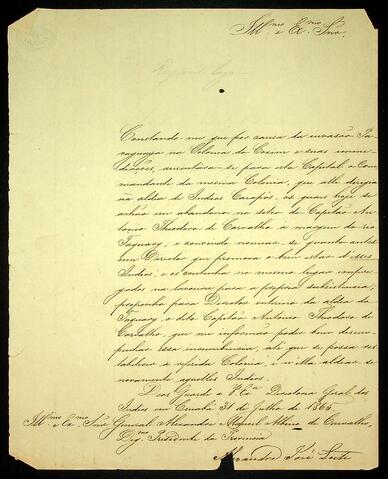 Ill.mo e Ex.mo Snr.
Constando me que por causa da invasão Pa
raguaya na Colonia do Coxim e suas imme
diações, ausentara-se para esta Capital o Com
mandante da mesma Colonia, que alli dirigia
na aldea de Indios Caiapós, os quaes hoje se
achão em abandono no sitio do Capitão An
tonio Theodoro de Carvalho a margem do rio
Taquary, e convindo nomear-se quanto antes
um Director que promova o bem estar d'esses
Indios, e os contenha no mesmo lugar empre
gados na lavoura para a propria subsistencia;
proponho para Director interino da aldea do
Taquary, o dito Capitão Antonio Theodoro de
Carvalho, que me informão poder bem desem
penhar essa incumbencia, até que se possa res
tabelecer a referida Colonia, e n'ella aldear-se
novamente aquelles Indios.
Deos Guarde a V.Ex.a Directoria Geral dos
Indios em Cuiabá 31 de Julho de 1865.
Ill.mo e Ex.mo Snr. General Alexandre Manoel Albino de Carvalho,
Dig.mo Presidente da Provincia
Alexandre José Leite